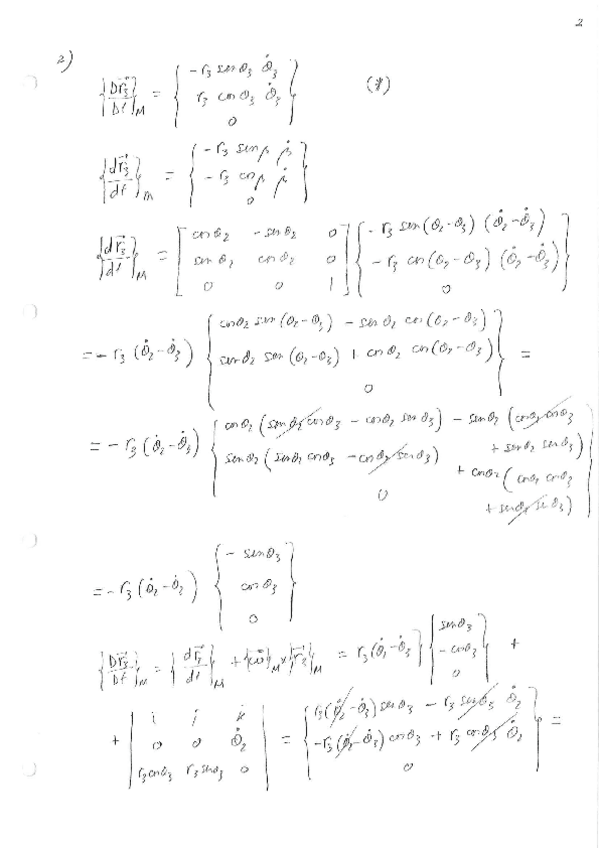 2
2)
{Dr⃗3/Dt}_M = { -r3 sen θ3 θ̇3 ; r3 cos θ3 θ̇3 ; 0 } (*)
{dr⃗3/dt}_m = { -r3 sen β β̇ ; -r3 cos β β̇ ; 0 }
{dr⃗3/dt}_M = [ cos θ2 -sen θ2 0 ; sen θ2 cos θ2 0 ; 0 0 1 ] { -r3 sen(θ2-θ3) (θ̇2-θ̇3) ; -r3 cos(θ2-θ3) (θ̇2-θ̇3) ; 0 }
= -r3 (θ̇2-θ̇3) { cos θ2 sen(θ2-θ3) - sen θ2 cos(θ2-θ3) ; sen θ2 sen(θ2-θ3) + cos θ2 cos(θ2-θ3) ; 0 } =
= -r3 (θ̇2-θ̇3) { cos θ2 (sen θ2 cos θ3 - cos θ2 sen θ3) - sen θ2 (cos θ2 cos θ3 + sen θ2 sen θ3) ; sen θ2 (sen θ2 cos θ3 - cos θ2 sen θ3) + cos θ2 (cos θ2 cos θ3 + sen θ2 sen θ3) ; 0 }
= -r3 (θ̇2-θ̇2) { -sen θ3 ; cos θ3 ; 0 }
{Dr⃗3/Dt}_M = {dr⃗3/dt}_M + {ω⃗}_M × {r⃗3}_M = r3 (θ̇2-θ̇3) { sen θ3 ; -cos θ3 ; 0 } +
+ | i j k ; 0 0 θ̇2 ; r3 cos θ3 r3 sen θ3 0 | = { r3 (θ̇2-θ̇3) sen θ3 - r3 sen θ3 θ̇2 ; -r3 (θ̇2-θ̇3) cos θ3 + r3 cos θ3 θ̇2 ; 0 } =